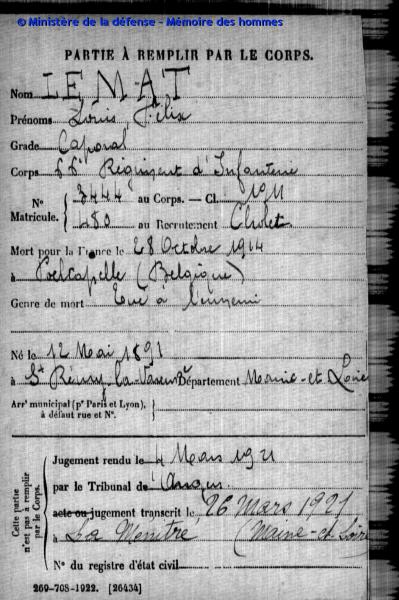 © Ministère de la défense - Mémoire des hommes
PARTIE À REMPLIR PAR LE CORPS.
Nom LEMAT
Prénoms Louis Félix
Grade Caporal
Corps 68e Régiment d'Infanterie
N° Matricule. { 3444 au Corps. — Cl. 1911
480 au Recrutement Cholet
Mort pour la France le 28 Octobre 1914
à Poelcapelle (Belgique)
Genre de mort Tué à l'ennemi
Né le 12 Mai 1891
à St Rémy-la-Varenne Département Maine-et-Loire
Arrt municipal (pr Paris et Lyon), à défaut rue et N°. {
Cette partie n'est pas à remplir par le Corps.
Jugement rendu le 4 Mars 1921
par le Tribunal de Angers
acte ou jugement transcrit le 26 Mars 1921
à La Ménitré (Maine-et-Loire
N° du registre d'état civil
269-708-1922. [26434]